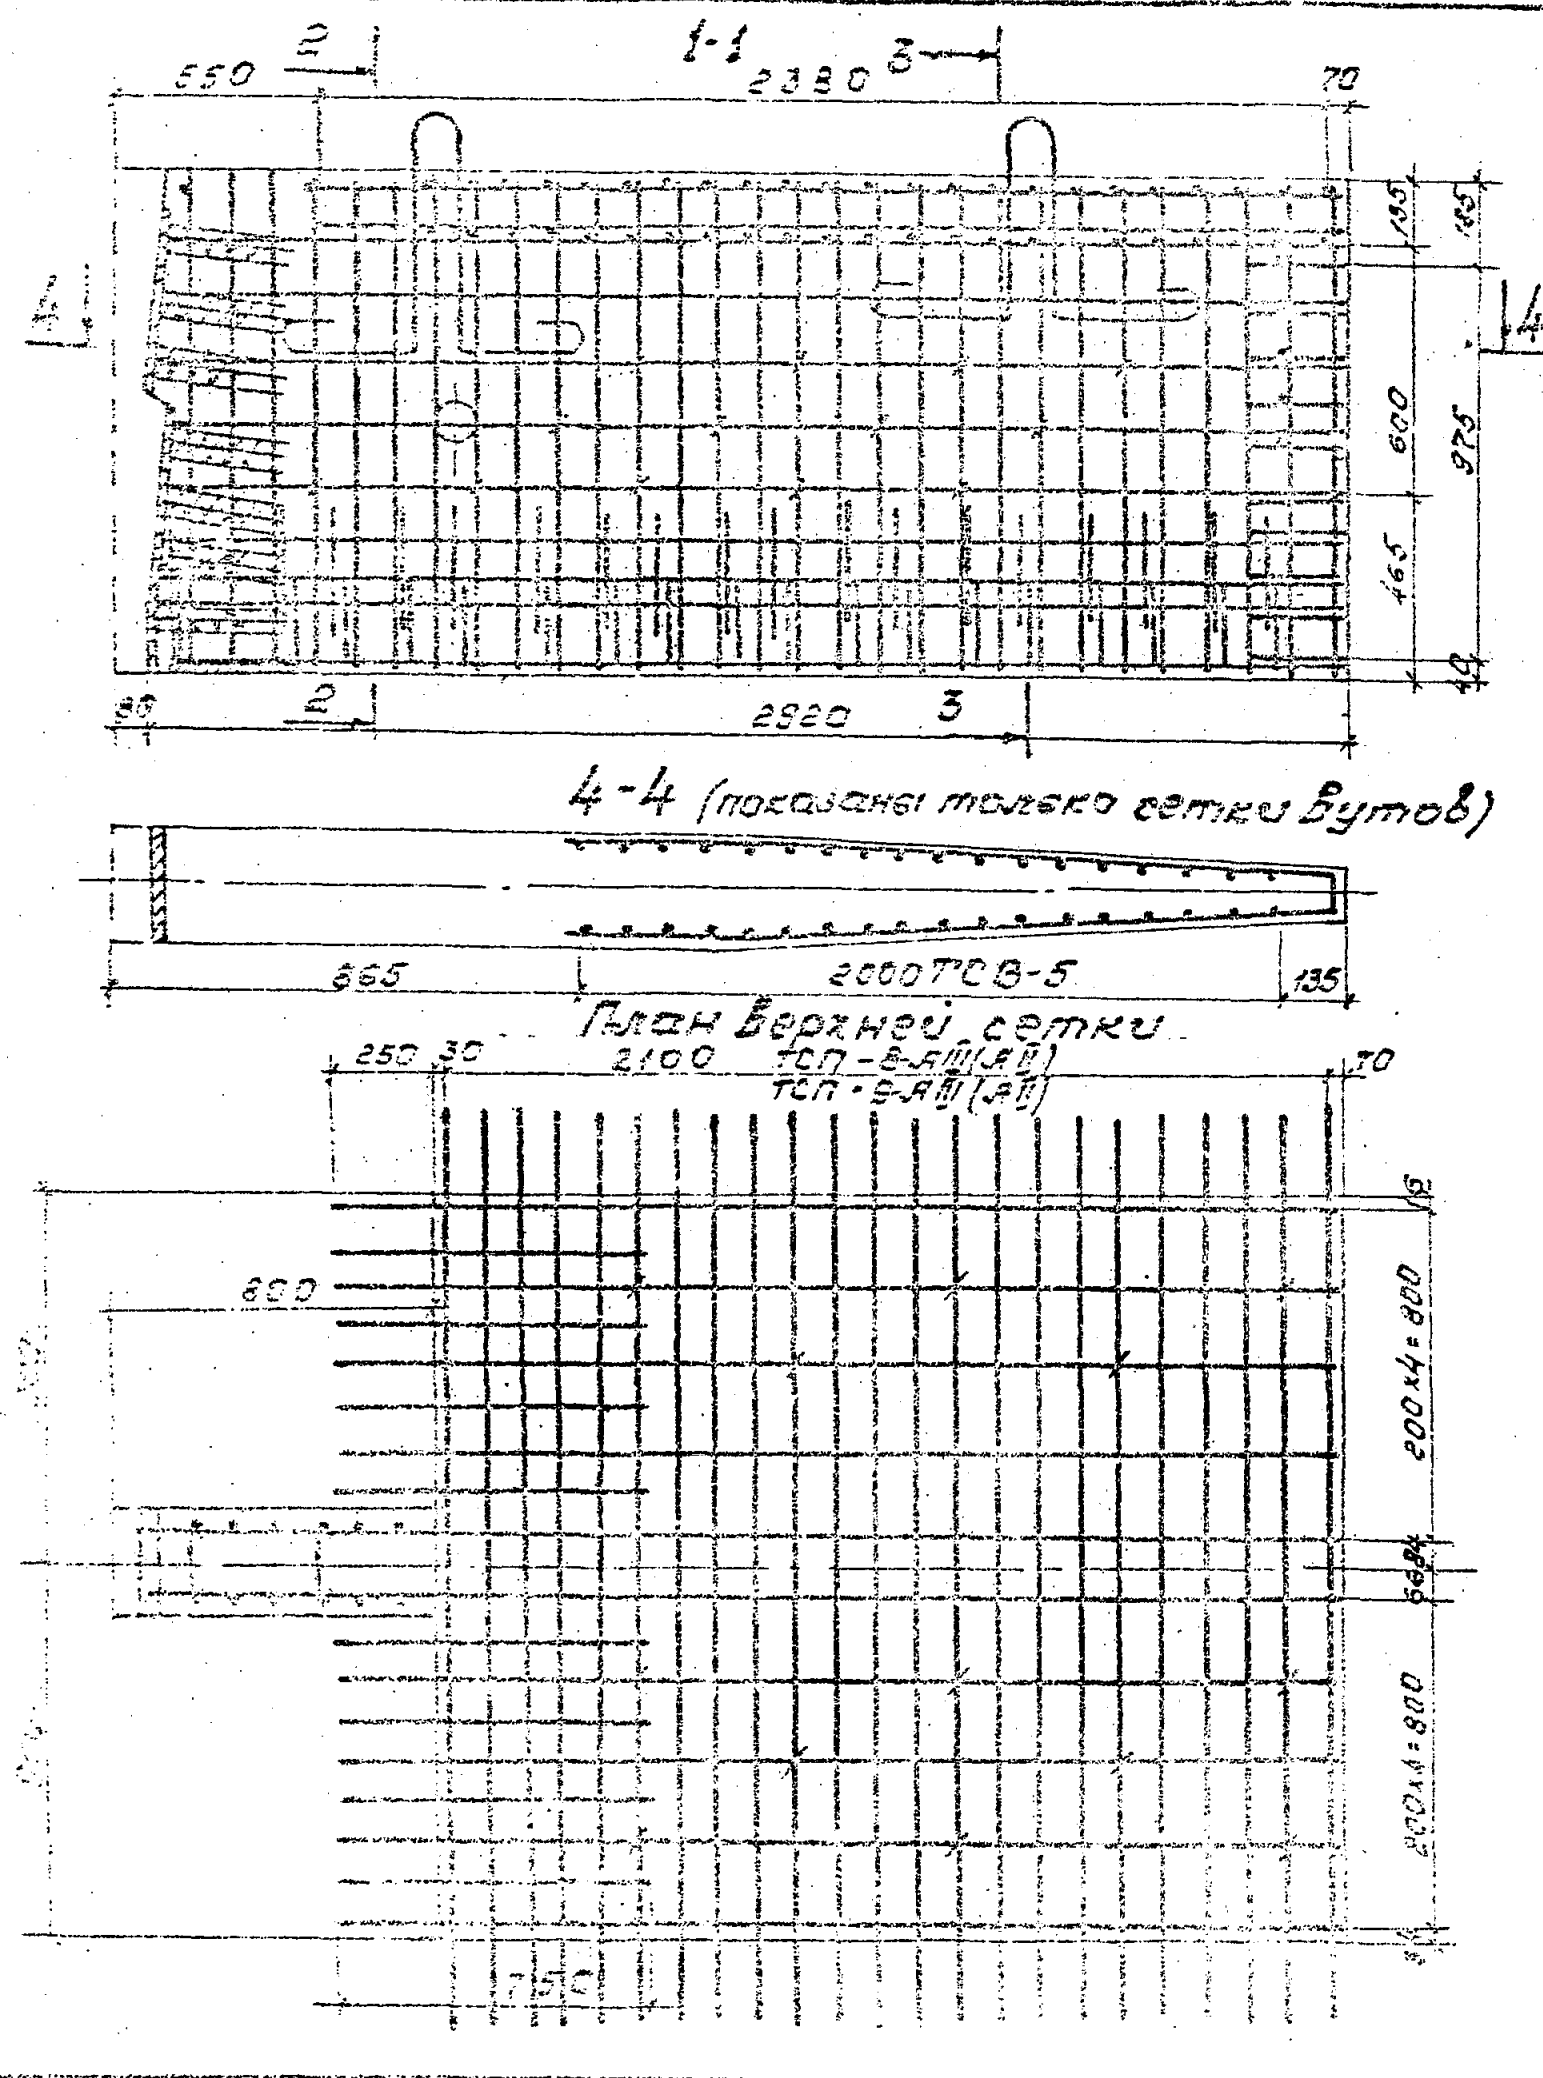 2
1-1
3
550
2380
70
135
185
4
4
600
975
465
40
80
2
2920
3
4-4 (показаны только сетки вутов)
865
2000 ТСВ-5
135
План верхней сетки
250
30
2100
ТСП-8-АIII(АII)
70
ТСП-9-АIII(АII)
600
200x4=800
200x4=800